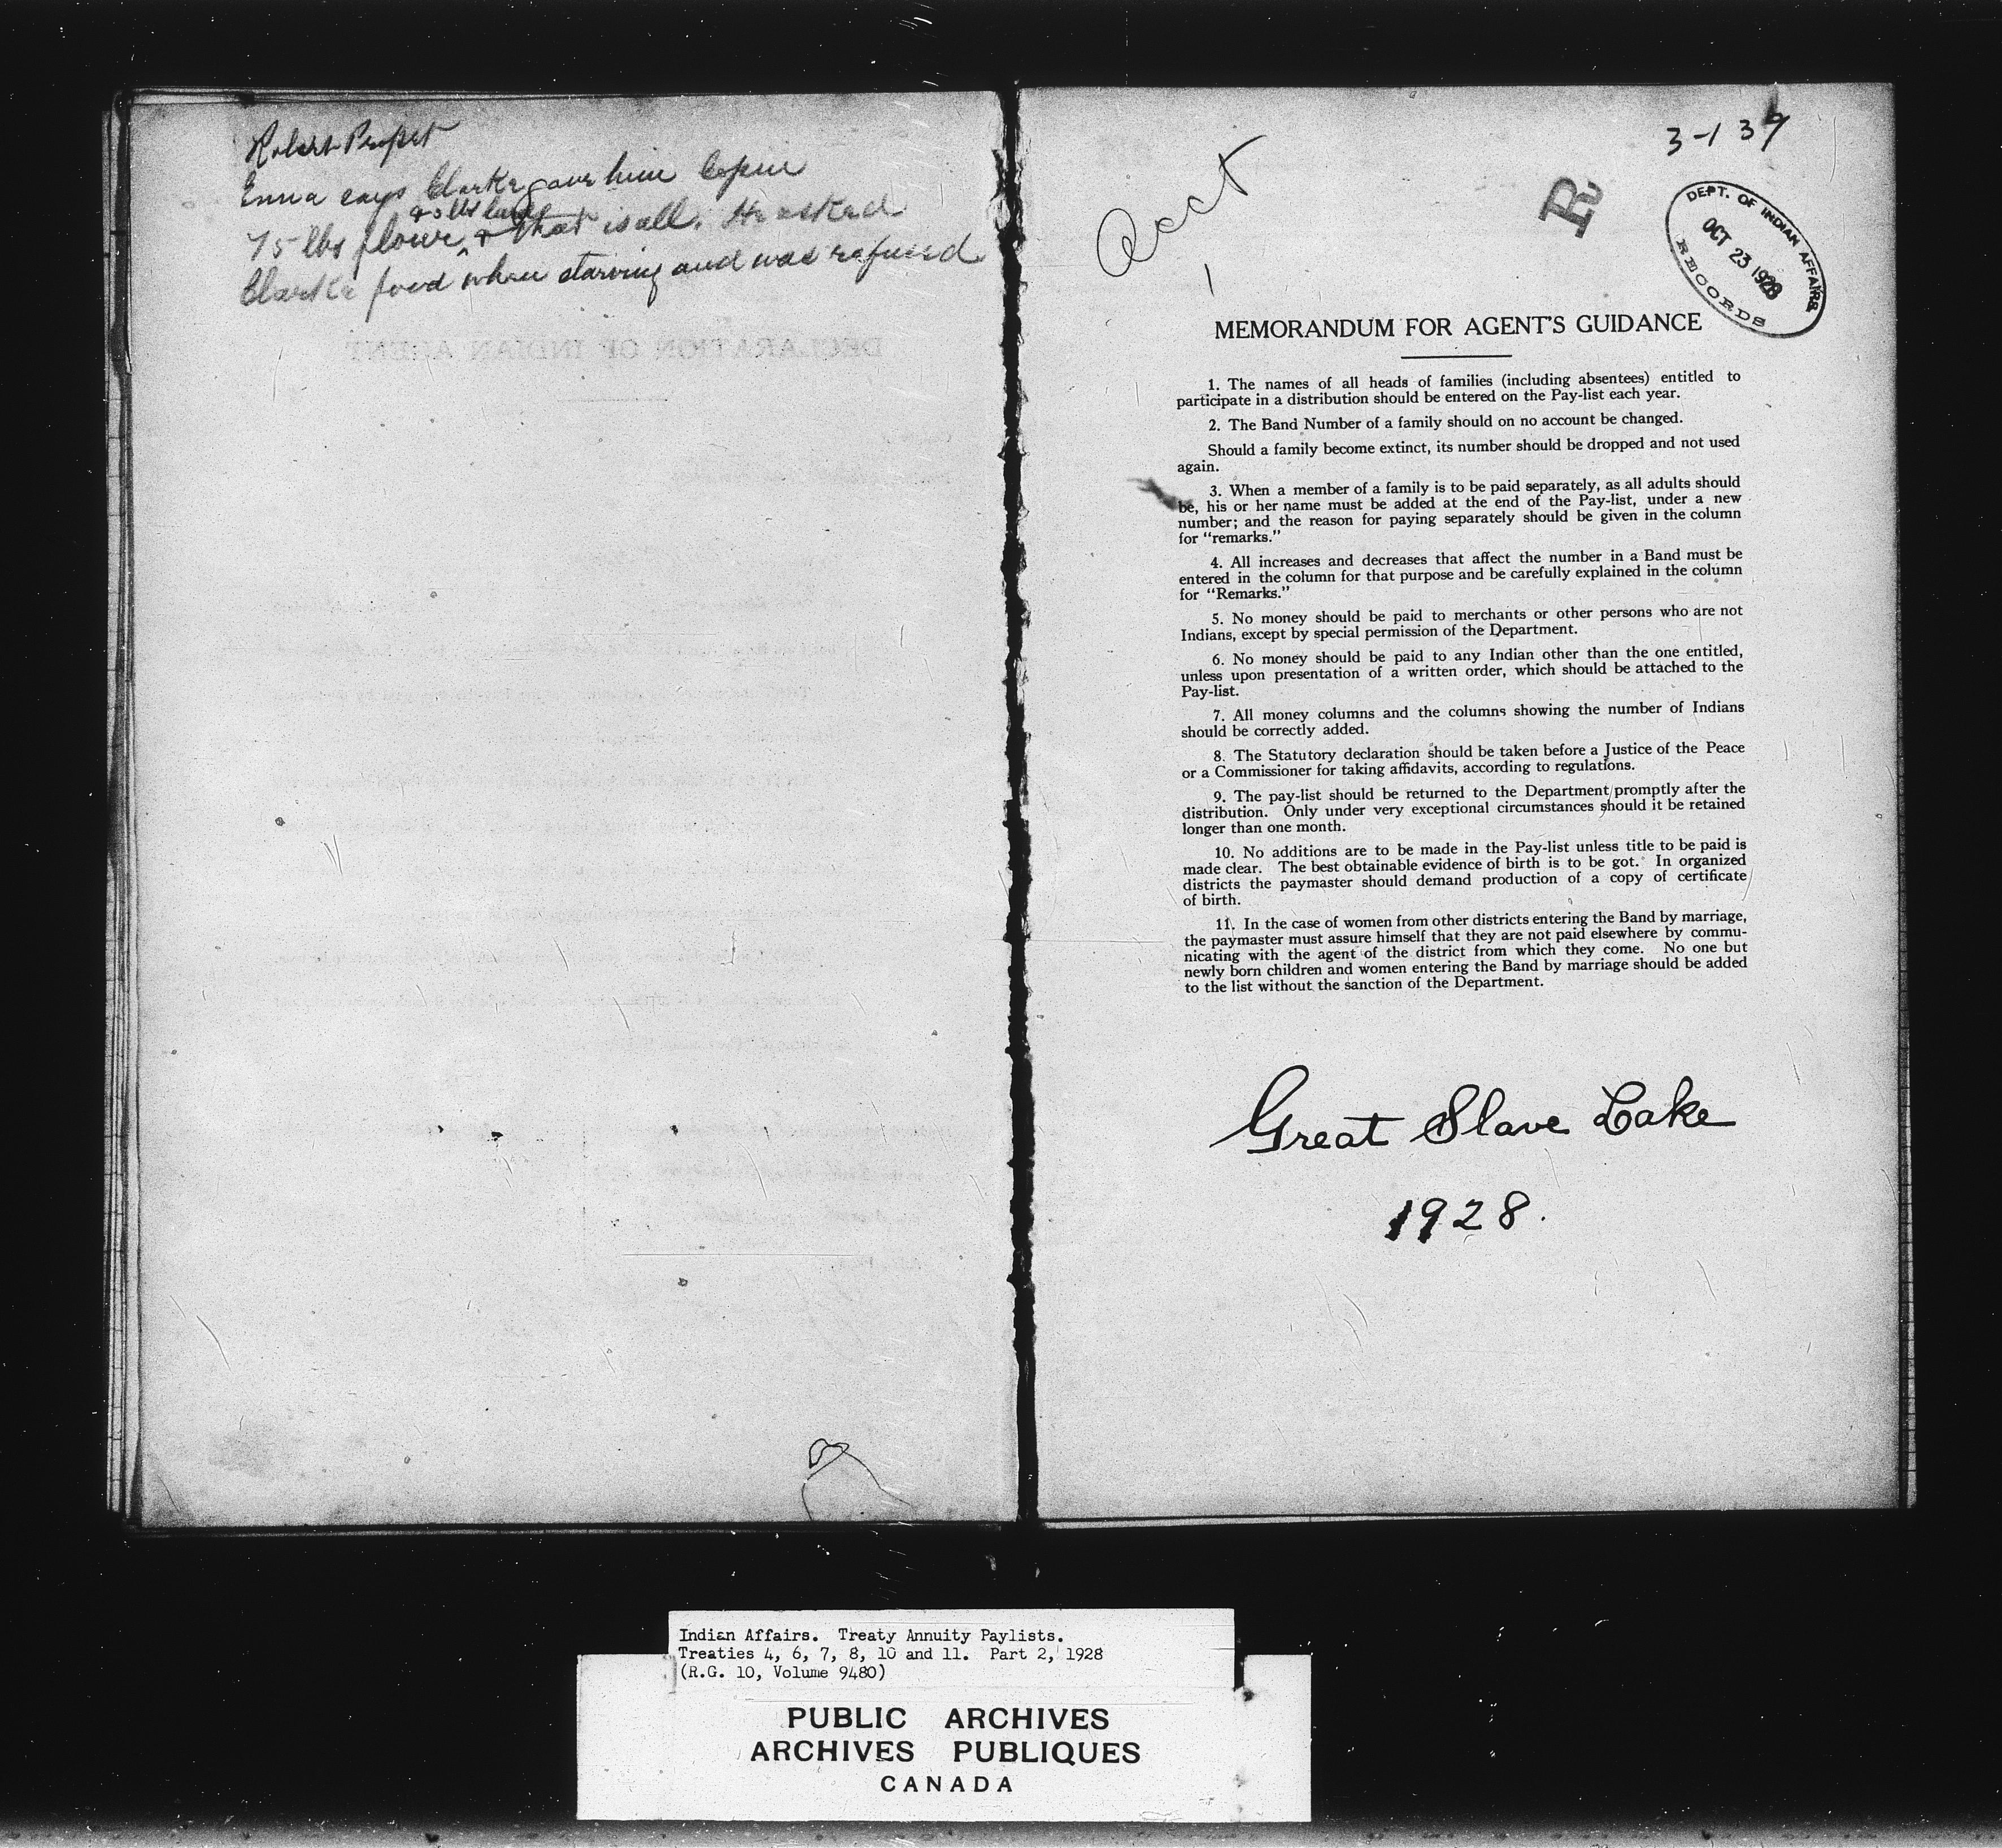 Enna says Clarke gave him
& 3 lbs lard
75 lbs flour & that is all. He asked
Clarke food when starving and was refused
DECLARATION OF INDIAN AGENT
Acct
3-139
R
DEPT. OF INDIAN AFFAIRS
OCT 23 1928
RECORDS
MEMORANDUM FOR AGENT'S GUIDANCE
1. The names of all heads of families (including absentees) entitled to
participate in a distribution should be entered on the Pay-list each year.
2. The Band Number of a family should on no account be changed.
Should a family become extinct, its number should be dropped and not used
again.
3. When a member of a family is to be paid separately, as all adults should
be, his or her name must be added at the end of the Pay-list, under a new
number; and the reason for paying separately should be given in the column
for "remarks."
4. All increases and decreases that affect the number in a Band must be
entered in the column for that purpose and be carefully explained in the column
for "Remarks."
5. No money should be paid to merchants or other persons who are not
Indians, except by special permission of the Department.
6. No money should be paid to any Indian other than the one entitled,
unless upon presentation of a written order, which should be attached to the
Pay-list.
7. All money columns and the columns showing the number of Indians
should be correctly added.
8. The Statutory declaration should be taken before a Justice of the Peace
or a Commissioner for taking affidavits, according to regulations.
9. The pay-list should be returned to the Department promptly after the
distribution. Only under very exceptional circumstances should it be retained
longer than one month.
10. No additions are to be made in the Pay-list unless title to be paid is
made clear. The best obtainable evidence of birth is to be got. In organized
districts the paymaster should demand production of a copy of certificate
of birth.
11. In the case of women from other districts entering the Band by marriage,
the paymaster must assure himself that they are not paid elsewhere by commu-
nicating with the agent of the district from which they come. No one but
newly born children and women entering the Band by marriage should be added
to the list without the sanction of the Department.
Great Slave Lake
1928.
Indian Affairs. Treaty Annuity Paylists.
Treaties 4, 6, 7, 8, 10 and 11. Part 2, 1928
(R.G. 10, Volume 9480)
PUBLIC ARCHIVES
ARCHIVES PUBLIQUES
CANADA